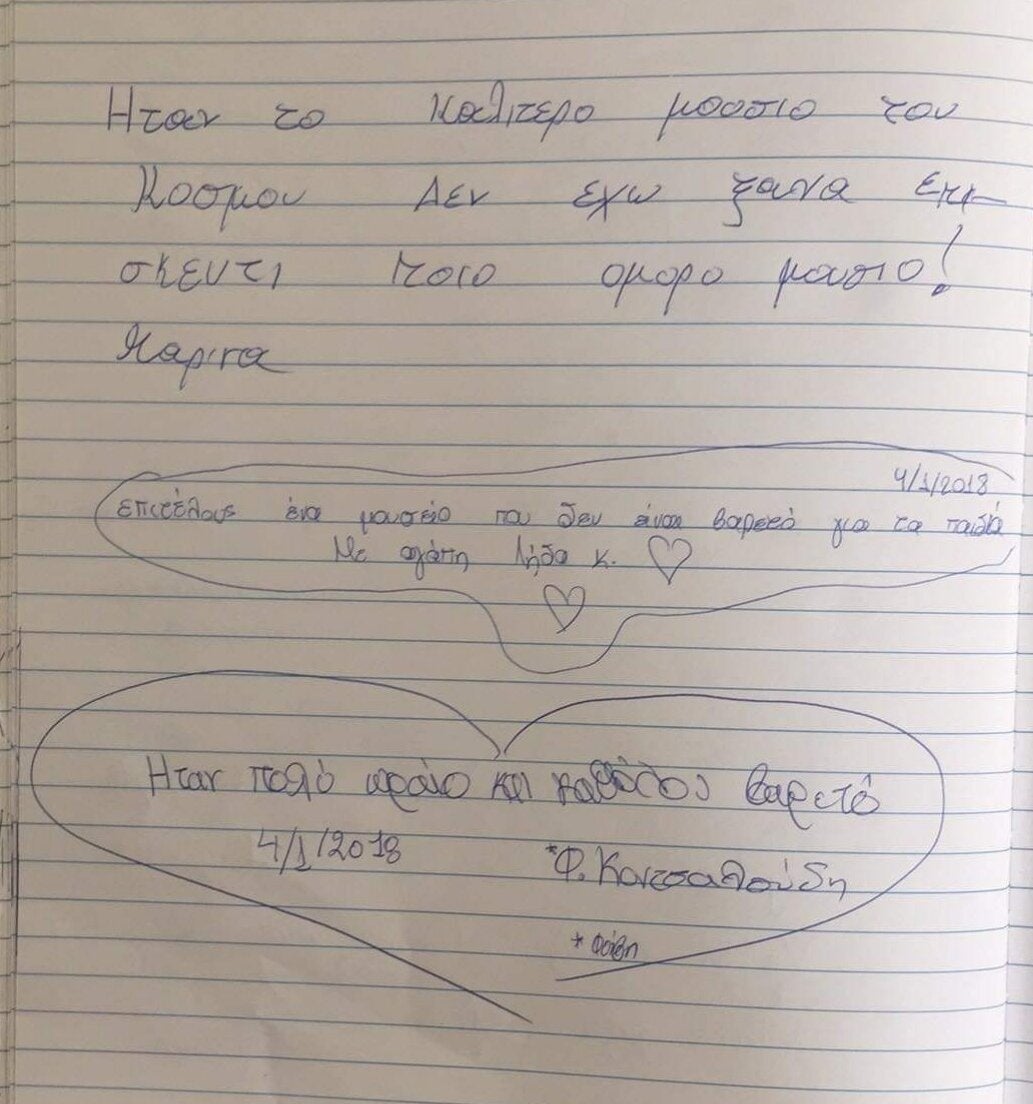 Ηταν το καλιτερο μουσιο του
κοσμου Δεν εχω ξανα επι-
σκευτι ποιο ομορο μουσιο!
Μαρινα
4/1/2018
επιτέλους ένα μουσείο που δεν είναι βαρετό για τα παιδιά
Με αγάπη Λήδα κ.
Ηταν πολύ ωραίο και καθόλου βαρετό
4/1/2018
*Φ. Κοντσαλούδη
* Φοίβη